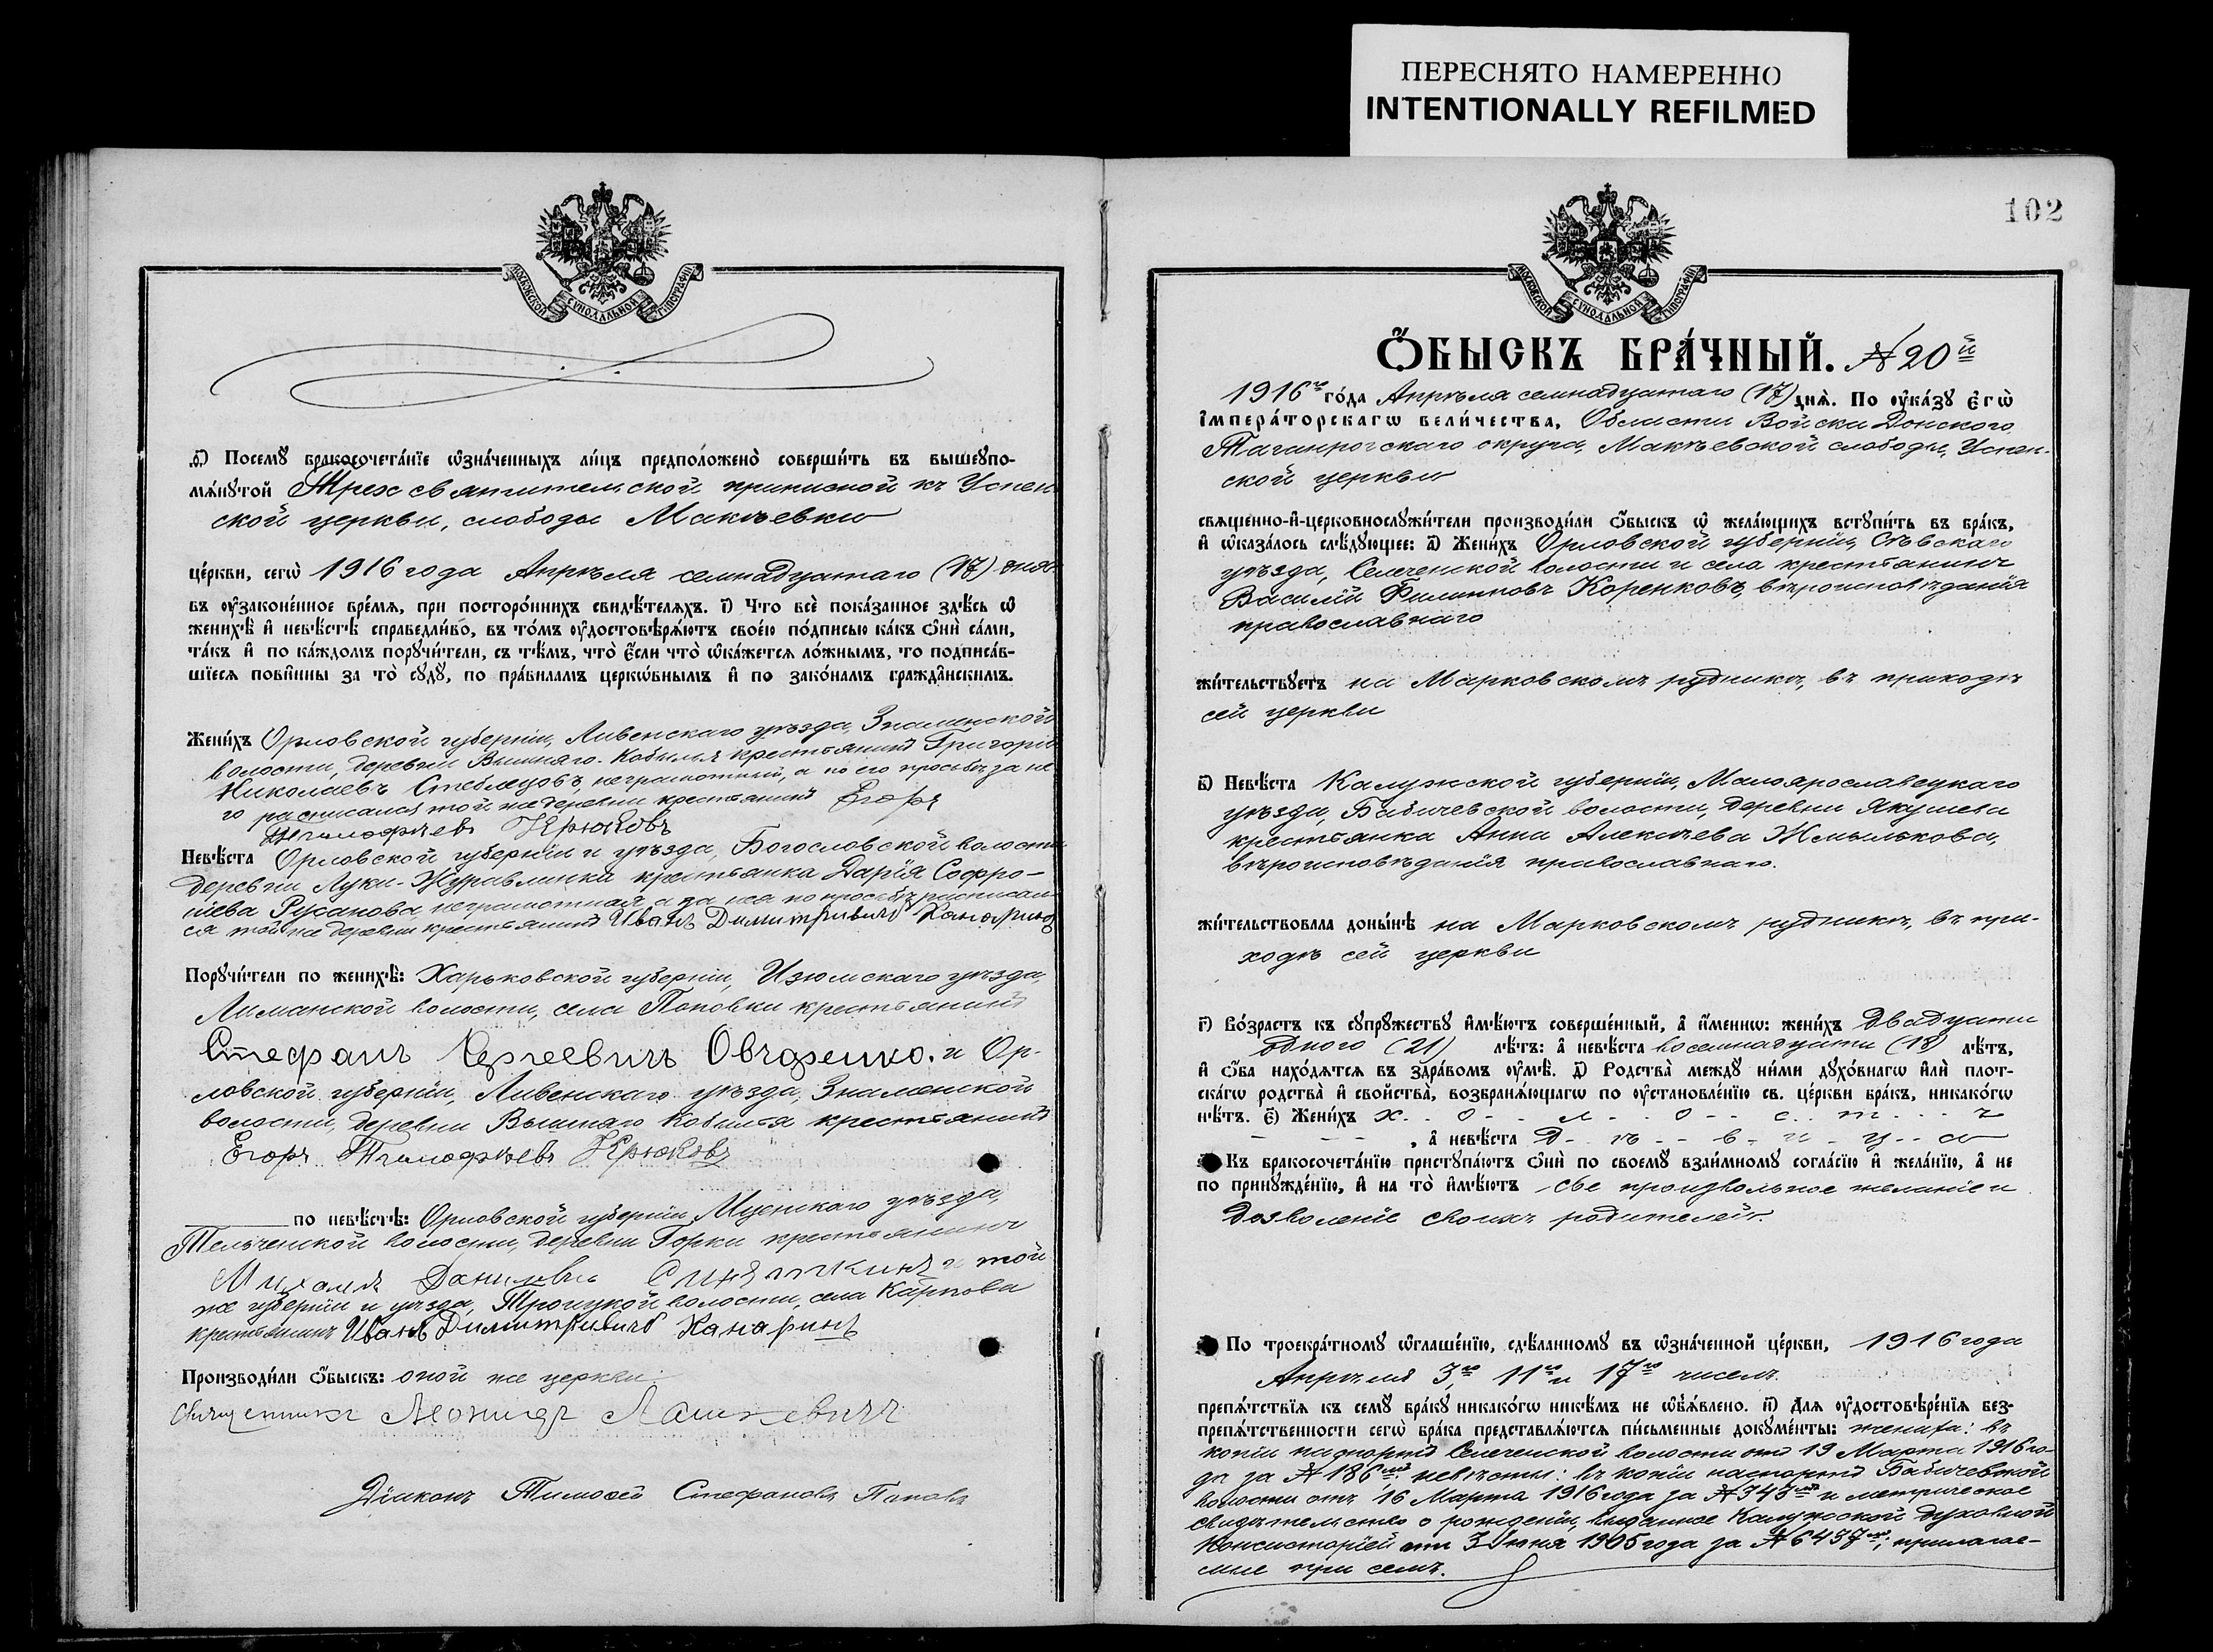 ПЕРЕСНЯТО НАМЕРЕННО
INTENTIONALLY REFILMED
МОСКОВСКОЙ СУНОДАЛЬНОЙ ТИПОГРАФІИ
ѳ҃) Посемꙋ бракосочета́нїе ѡ҆зна́ченныхъ ли́цъ предположено̀ соверши́ть въ вышеꙋпо-
мѧ́нꙋтой Трехсвятительской приписной къ Успен
ской церкви, слободы Макѣевки
це́ркви, сегѡ̀ 1916 года Апрѣля семнадцатаго (17) дня
въ ᲂу҆законе́нное вре́мѧ, при посторо́ннихъ свидѣ́телѧхъ. і҃) Что всѐ пока́занное здѣ́сь ѡ҆
женихѣ̀ и҆ невѣ́стѣ справедли́во, въ то́мъ ᲂу҆достовѣрѧ́ютъ свое́ю по́дписью ка́къ ѻ҆нѝ са́ми,
та́къ и҆ по ка́ждомъ порꙋчи́тели, съ тѣ́мъ, что̀ є҆́сли что̀ ѡ҆ка́жетсѧ ло́жнымъ, то подписа́в-
шїесѧ пови́нны за то̀ сꙋдꙋ̀, по пра́виламъ церкѡ́внымъ и҆ по зако́намъ гражда́нскимъ.
Жени́хъ Орловской губерніи, Ливенскаго уѣзда, Знаменской
волости, деревни Вышняго-Кобылья крестьянинъ Григорій
Николаевъ Стеблецовъ, неграмотный, а по его просьбѣ за не
го расписался той же деревни крестьянинъ Егоръ
Тимофѣевъ Крюковъ
Невѣ́ста Орловской губерніи и уѣзда, Богословской волости
деревни Луки-Журавлинки крестьянка Дарія Софро-
ніева Русанова, неграмотная, а за нея по просьбѣ расписал
ся той же деревни крестьянинъ Иванъ Димитривичъ Канаринъ
Порꙋчи́тели по женихѣ̀: Харьковской губерніи, Изюмскаго уѣзда,
Лиманской волости, села Поповки крестьянинъ
Стефанъ Сергеевичъ Овчаренко. и Ор-
ловской губерніи, Ливенскаго уѣзда, Знаменской
волости, деревни Вышняго Кобылья крестьянинъ
Егоръ Тимофѣевъ Крюковъ
по невѣ́стѣ: Орловской губерніи, Мценскаго уѣзда,
Тельченской волости, деревни Горки крестьянинъ
Михаилъ Даниловъ и той
же губерніи и уѣзда, Троицкой волости, села Карпова
крестьянинъ Иванъ Димитривичъ Канаринъ
Производи́ли ѻ҆́быскъ: оной же церкви:
Священникъ Леонидъ Лашкевичъ
Діаконъ Тимоѳей Стефановъ Поповъ
102
МОСКОВСКОЙ СУНОДАЛЬНОЙ ТИПОГРАФІИ
Ѻ҆́БЫСКЪ БРА́ЧНЫЙ. № 20й
1916го го́да Апрѣля семнадцатаго (17) днѧ̀. По ᲂу҆ка́зꙋ є҆гѡ̀
і҆мпера́торскагѡ вели́чества, Области Войска Донского
Таганрогскаго округа, Макѣевской слободы, Успен-
ской церкви
свѧщенно-и҆-церковнослꙋжи́тели производи́ли ѻ҆́быскъ ѡ҆ жела́ющихъ встꙋпи́ть въ бра́къ,
и҆ ѡ҆каза́лось слѣ́дꙋющее: а҃) Жени́хъ Орловской губерніи, Сѣвскаго
уѣзда, Селеченской волости и села крестьянинъ
Василій Филипповъ Коренковъ, вѣроисповѣданія
православнаго
жи́тельствꙋетъ на Марковскомъ рудникѣ, въ приходѣ
сей церкви
в҃) Невѣ́ста Калужской губерніи, Малоярославецкаго
уѣзда, Бабичевской волости, деревни Якушева
крестьянка Анна Алексѣева Жмылькова,
вѣроисповѣданія православнаго.
жи́тельствовала доны́нѣ на Марковскомъ рудникѣ, въ при-
ходѣ сей церкви
г҃) Во́зрастъ къ сꙋпрꙋ́жествꙋ и҆мѣ́ютъ соверше́нный, а҆ и҆́меннѡ: жени́хъ двадцати
одного (21) лѣ́тъ: а҆ невѣ́ста восемнадцати (18) лѣ́тъ,
и҆ ѻ҆́ба нахо́дѧтсѧ въ здра́вомъ ᲂу҆мѣ̀. д҃) Родства̀ междꙋ̀ ни́ми дꙋхо́внагѡ и҆лѝ плот-
ска́гѡ родства̀ и҆ свойства̀, возбранѧ́ющагѡ по ᲂу҆становле́нїю св. це́ркви бра́къ, никако́гѡ
нѣ́тъ. є҃) Жени́хъ х - о - л - о - с - т - ъ
, а҆ невѣ́ста д - ѣ - в - и - ц - а
Къ бракосочета́нїю пристꙋпа́ютъ ѻ҆нѝ по своемꙋ̀ взаи́мномꙋ согла́сїю и҆ жела́нїю, а҆ не
по принꙋжде́нїю, и҆ на то̀ и҆мѣ́ютъ свое произвольное желаніе и
дозволеніе своихъ родителей.
По троекра́тномꙋ ѡ҆глаше́нїю, сдѣ́ланномꙋ въ ѡ҆зна́ченной це́ркви, 1916 года
Апрѣля 3го, 11го и 17го чиселъ
препѧ́тствїѧ къ семꙋ̀ бра́кꙋ никако́гѡ никѣ́мъ не ѡ҆б̾ѧ́влено. и҃) Длѧ ᲂу҆достовѣре́нїѧ без-
препѧ́тственности сегѡ̀ бра́ка представлѧ́ютсѧ пи́сьменные докꙋме́нты: жениха: въ
копіи паспортъ Селеченской волости отъ 19 Марта 1916 го-
да за № 186мъ; невѣсты: въ копіи паспортъ Бабичевской
волости отъ 16 Марта 1916 года за № 343мъ и метрическое
свидѣтельство о рожденіи, выданное Калужской Духовной
Консисторіей отъ 3 Іюня 1905 года за № 6437мъ; прилагае-
мые при семъ.